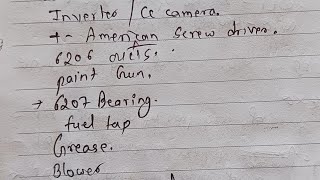 Inverter / CC camera.
+- American Screw driver.
6206
paint Gun.
→ 6207 Bearing.
fuel tap
Grease.
Blower